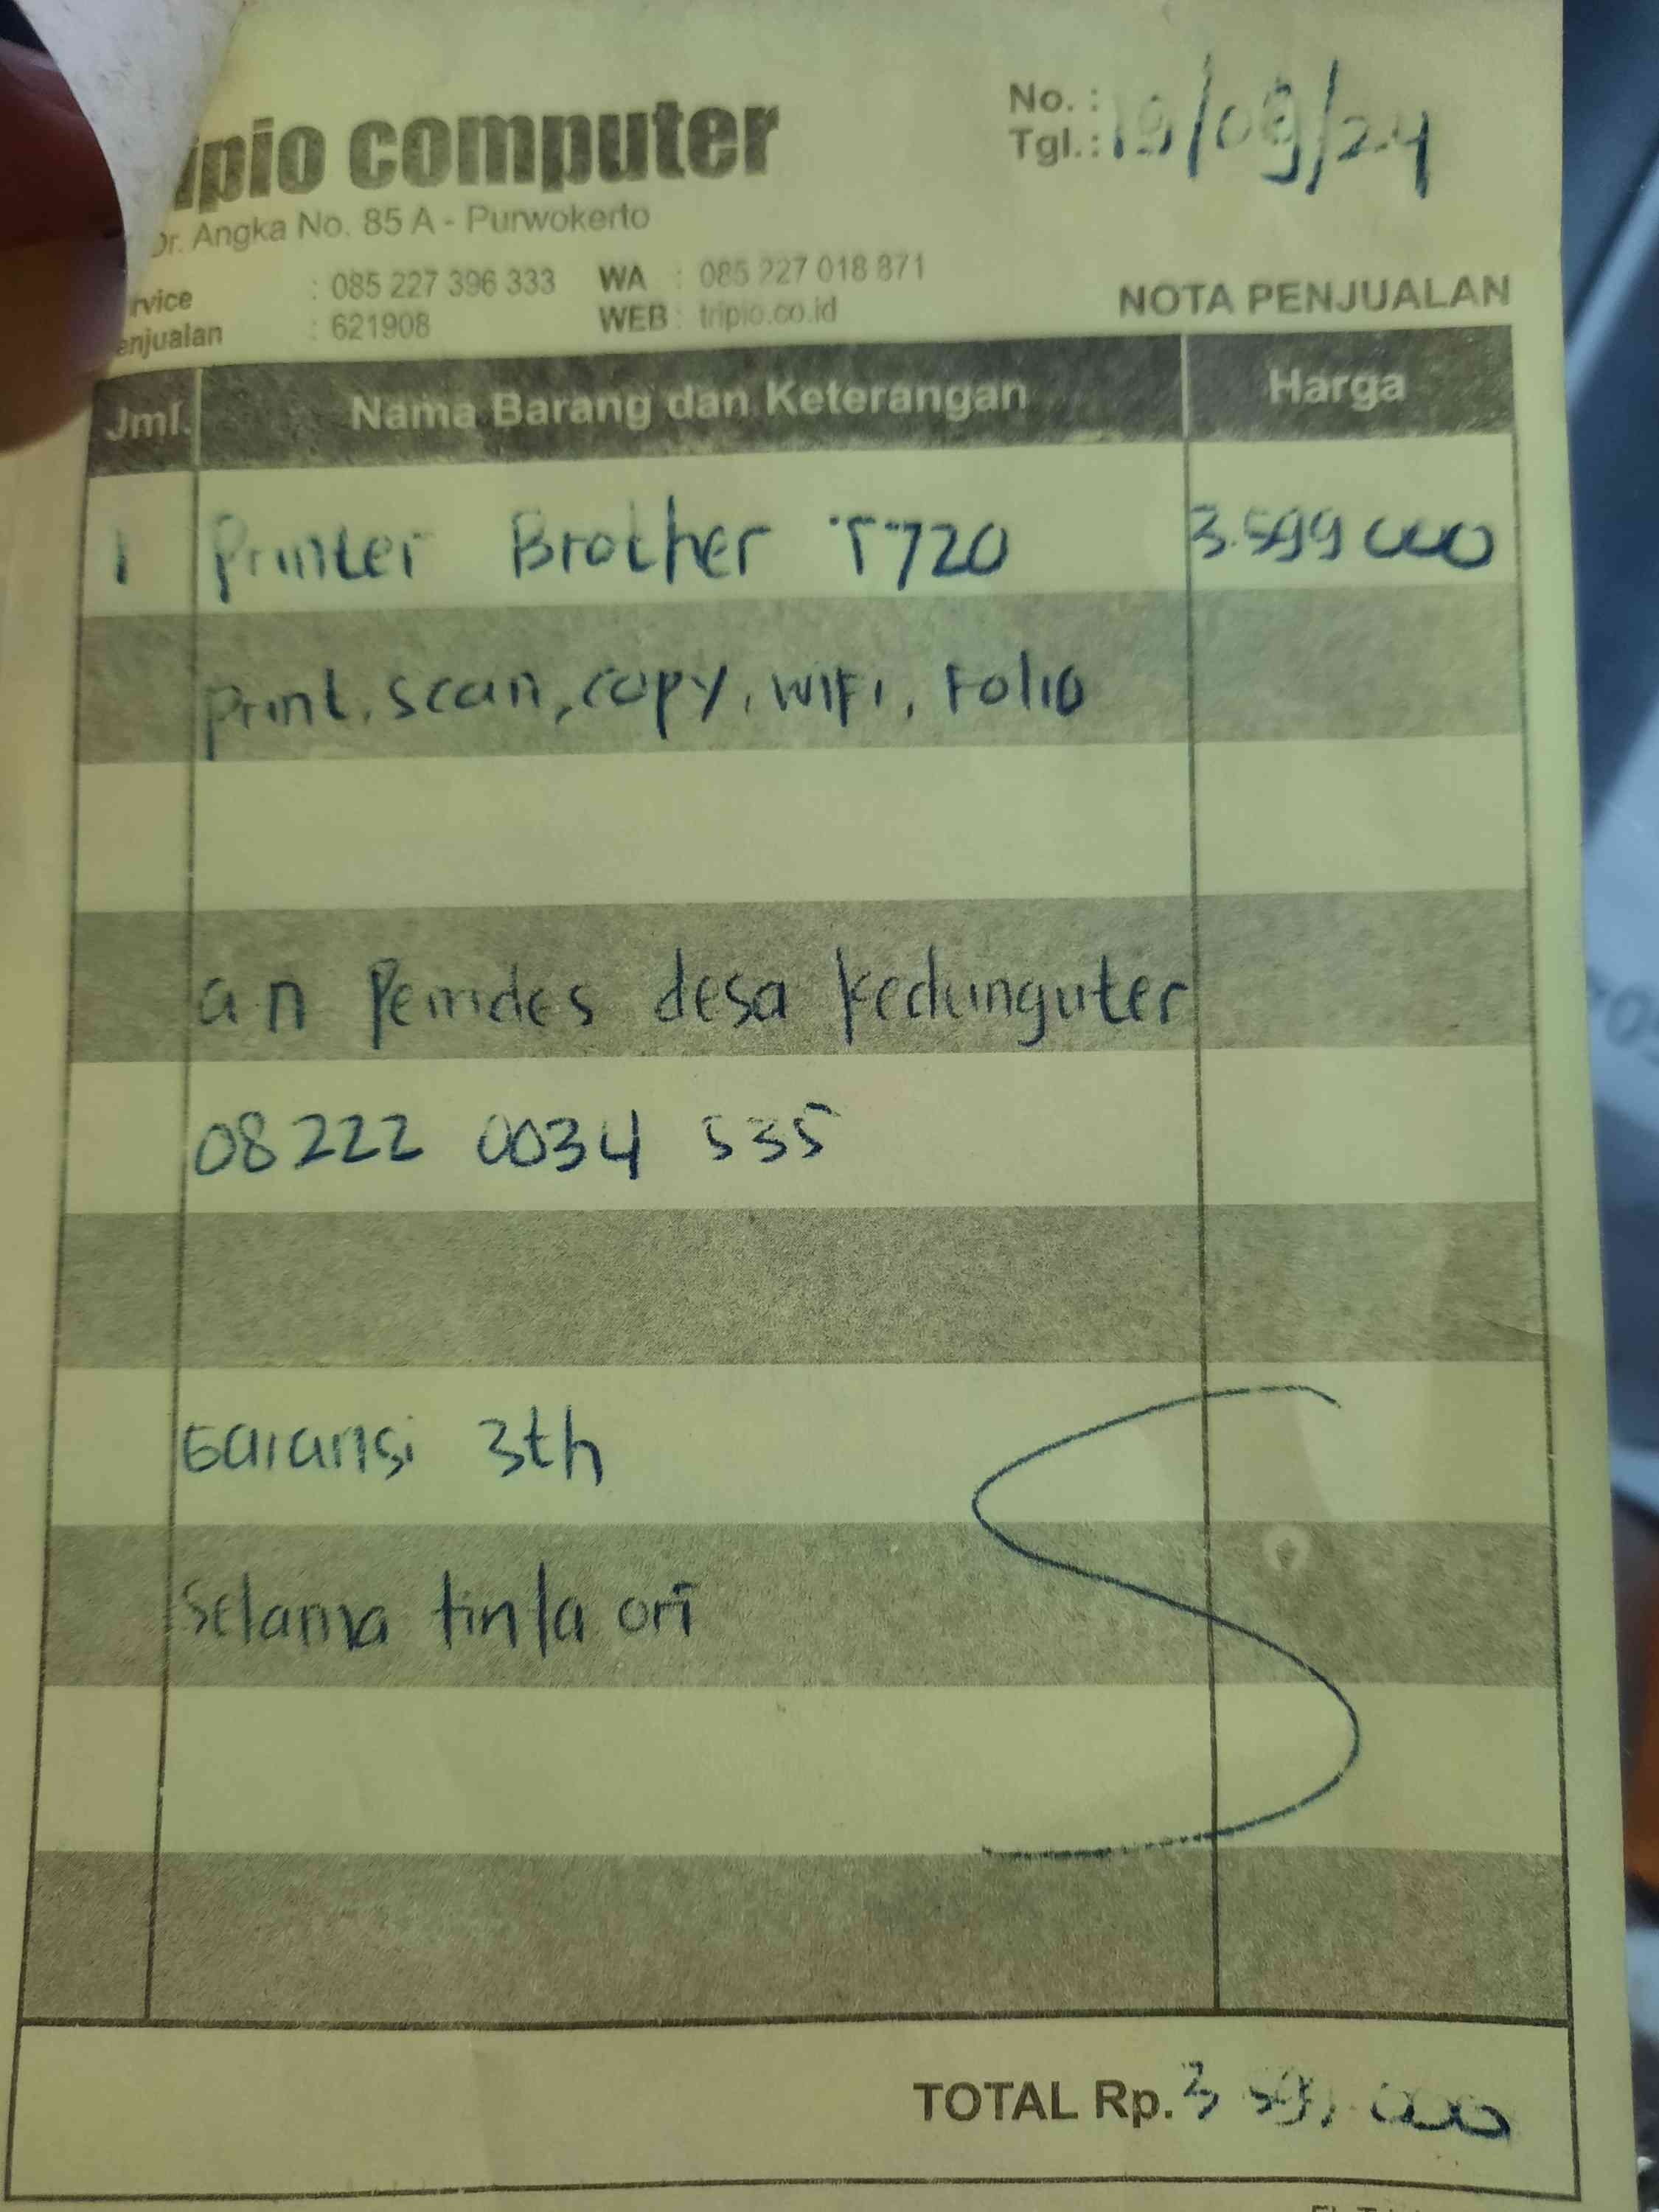 ipio computer
No. :
Tgl.: 19/09/24
Dr. Angka No. 85 A - Purwokerto
rvice : 085 227 396 333 WA : 085 227 018 871
enjualan : 621908 WEB : tripio.co.id
NOTA PENJUALAN
Jml. Nama Barang dan Keterangan Harga
1 Printer Brother T720 3.599 000
Print, scan, copy, WIFI, Folio
an Pemdes desa Kedunguter
08222 0034 535
Garansi 3th
Selama tinta ori
TOTAL Rp. 3 599.000